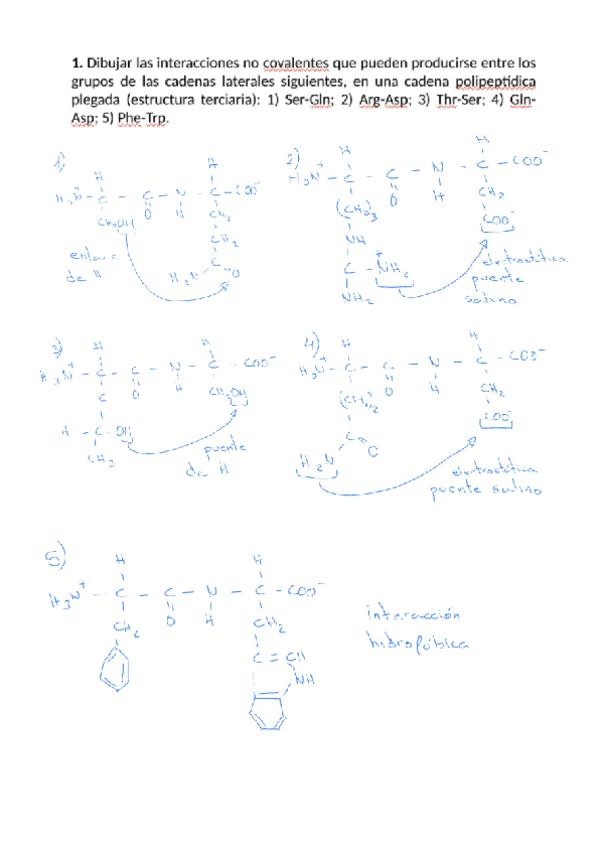 1. Dibujar las interacciones no covalentes que pueden producirse entre los
grupos de las cadenas laterales siguientes, en una cadena polipeptídica
plegada (estructura terciaria): 1) Ser-Gln; 2) Arg-Asp; 3) Thr-Ser; 4) Gln-
Asp; 5) Phe-Trp.
1)
H H
H₃N⁺ - C - C - N - C - COO⁻
CH₂OH O H CH₂
CH₂
enlace
de H
H₂N C O
2)
H H
H₃N⁺ - C - C - N - C - COO⁻
(CH₂)₃ O H CH₂
NH COO⁻
C - NH₂⁺
NH₂
electrostática
puente
salino
3)
H H
H₃N⁺ - C - C - N - C - COO⁻
C O H CH₂OH
H - C - OH
CH₃
puente
de H
4)
H H
H₃N⁺ - C - C - N - C - COO⁻
(CH₂)₂ O H CH₂
COO⁻
C O
H₂N
electrostática
puente salino
5)
H H
H₃N⁺ - C - C - N - C - COO⁻
CH₂ O H CH₂
C = CH
NH
interacción
hidrofóbica